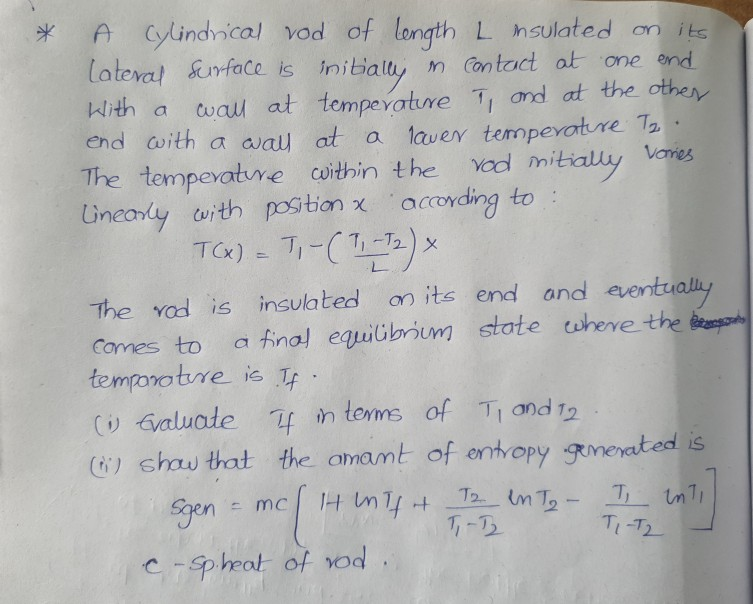 * A Cylindrical rod of length L insulated on its
lateral surface is initially in contact at one end
With a wall at temperature T₁ and at the other
end with a wall at a lower temperature T₂.
The temperature within the rod initially varies
linearly with position x according to :
T(x) = T₁ - (T₁-T₂/L) x
The rod is insulated on its end and eventually
comes to a final equilibrium state where the
temporature is Tf.
(i) Evaluate Tf in terms of T₁ and T₂.
(ii) show that the amant of entropy generated is
Sgen = mc[1+ ln Tf + T₂/T₁-T₂ ln T₂ - T₁/T₁-T₂ ln T₁]
c - Sp.heat of rod.